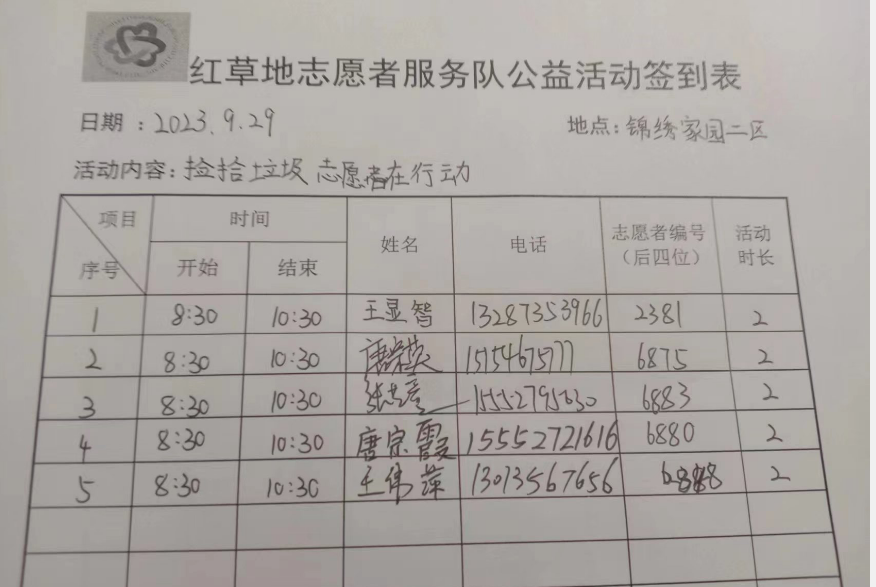 红草地志愿者服务队公益活动签到表
日期：2023.9.29 地点：锦绣家园二区
活动内容：捡拾垃圾 志愿者在行动
项目 时间 姓名 电话 志愿者编号 活动
序号 开始 结束 （后四位） 时长
1 8:30 10:30 王显智 13287353966 2381 2
2 8:30 10:30 唐荣英 6875 2
3 8:30 10:30 6883 2
4 8:30 10:30 唐宗霞 15552721616 6880 2
5 8:30 10:30 王伟萍 13013567656 2